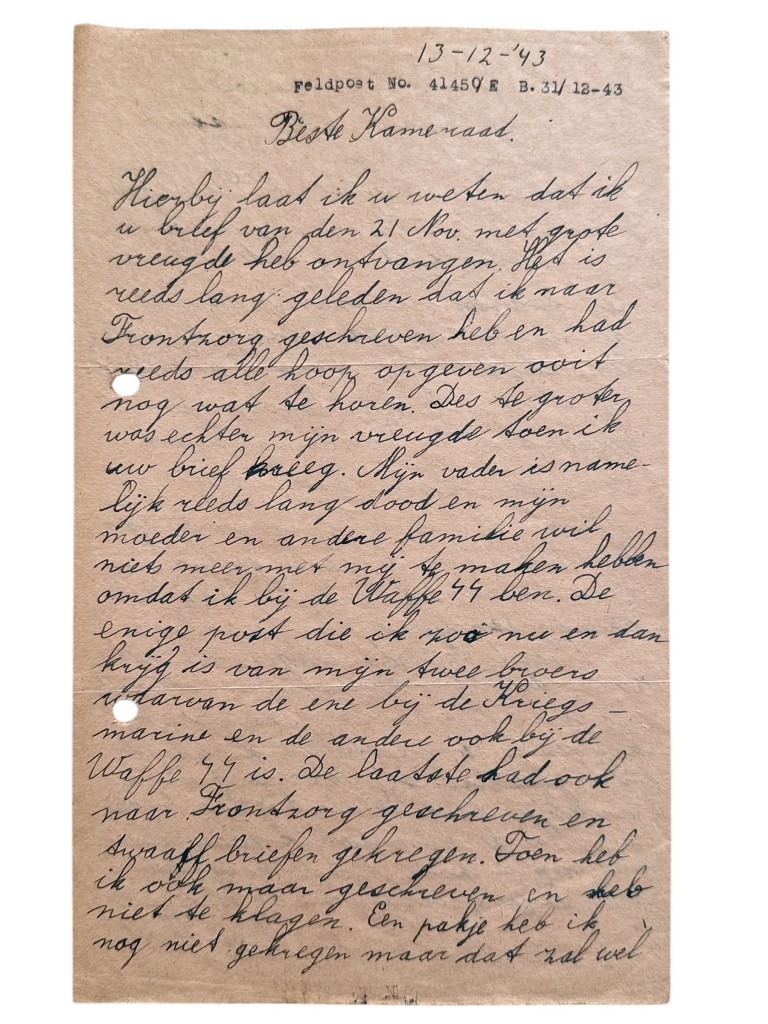 13-12-'43
Feldpost No. 41450/E B. 31/12-43
Beste Kameraad.
Hierbij laat ik u weten dat ik
u brief van den 21 Nov. met grote
vreugde heb ontvangen. Het is
reeds lang geleden dat ik naar
Frontzorg geschreven heb en had
reeds alle hoop opgeven ooit
nog wat te horen. Des te groter
was echter mijn vreugde toen ik
uw brief kreeg. Mijn vader is name-
lijk reeds lang dood en mijn
moeder en andere familie wil
niets meer met mij te maken hebben
omdat ik bij de Waffe ϟϟ ben. De
enige post die ik zoo nu en dan
krijg is van mijn twee broers
waarvan de ene bij de Kriegs-
marine en de andere ook bij de
Waffe ϟϟ is. De laatste had ook
naar Frontzorg geschreven en
twaalf briefen gekregen. Toen heb
ik ook maar geschreven en heb
niet te klagen. Een pakje heb ik
nog niet gekregen maar dat zal wel